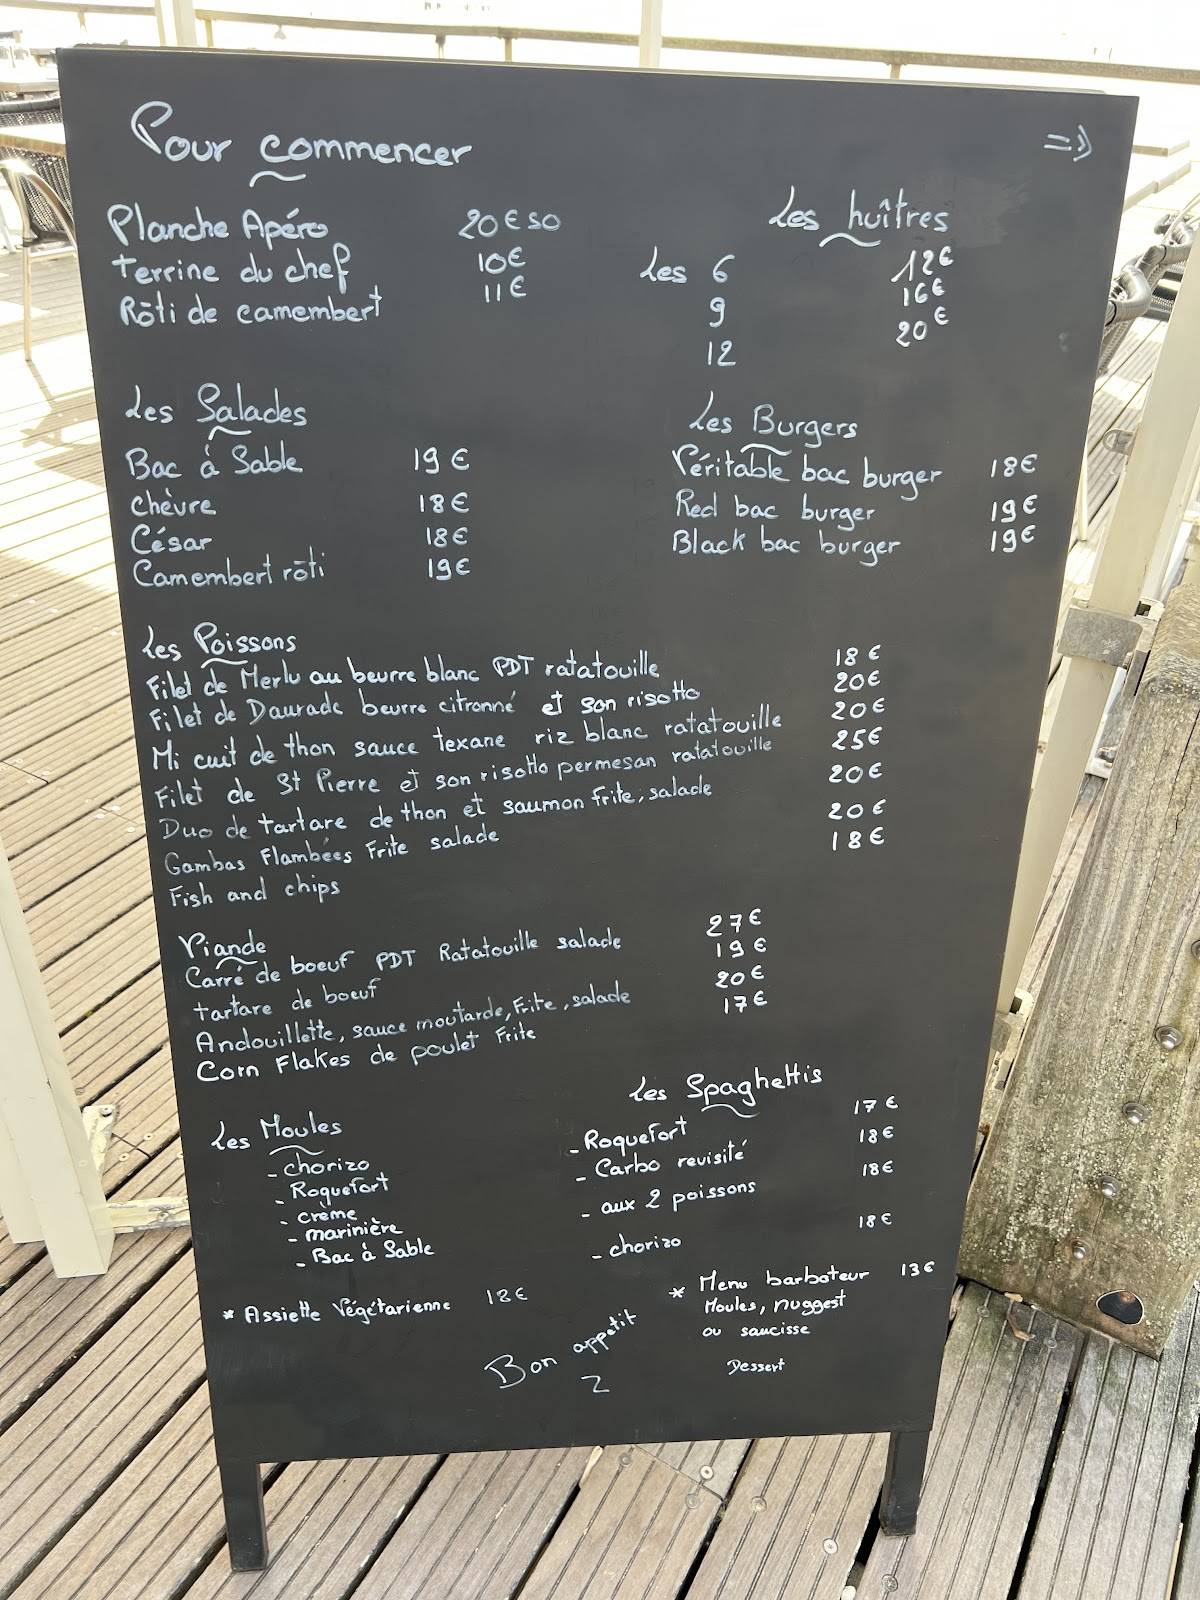 Pour commencer =>
Planche Apéro 20€50
Terrine du chef 10€
Rôti de camembert 11€
Les huîtres
Les 6 12€
9 16€
12 20€
Les Salades
Bac à Sable 19€
Chèvre 18€
César 18€
Camembert rôti 19€
Les Burgers
Véritable bac burger 18€
Red bac burger 19€
Black bac burger 19€
Les Poissons
Filet de Merlu au beurre blanc PDT ratatouille 18€
Filet de Daurade beurre citronné et son risotto 20€
Mi cuit de thon sauce texane riz blanc ratatouille 20€
Filet de St Pierre et son risotto permesan ratatouille 25€
Duo de tartare de thon et saumon frite, salade 20€
Gambas Flambées Frite salade 20€
Fish and chips 18€
Viande
Carré de boeuf PDT Ratatouille salade 27€
tartare de boeuf 19€
Andouillette, sauce moutarde, Frite, salade 20€
Corn Flakes de poulet Frite 17€
Les Moules
- chorizo
- Roquefort
- crème
- marinière
- Bac à Sable
Les Spaghettis
- Roquefort 17€
- Carbo revisité 18€
- aux 2 poissons 18€
- chorizo 18€
* Assiette Végétarienne 18€
* Menu barboteur 13€
Moules, nuggest
ou saucisse
Dessert
Bon appetit